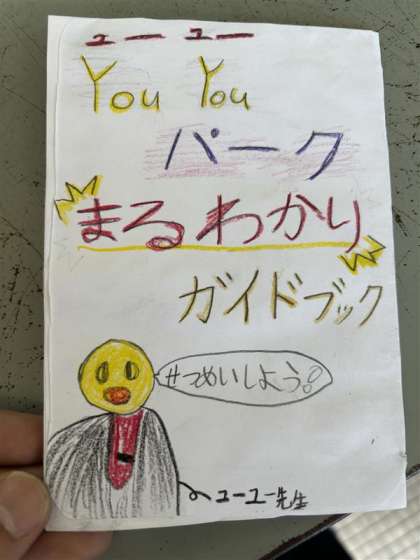 ューユー
You You
パーク
まるわかり
ガイドブック
せつめいしよう。
ユーユー先生